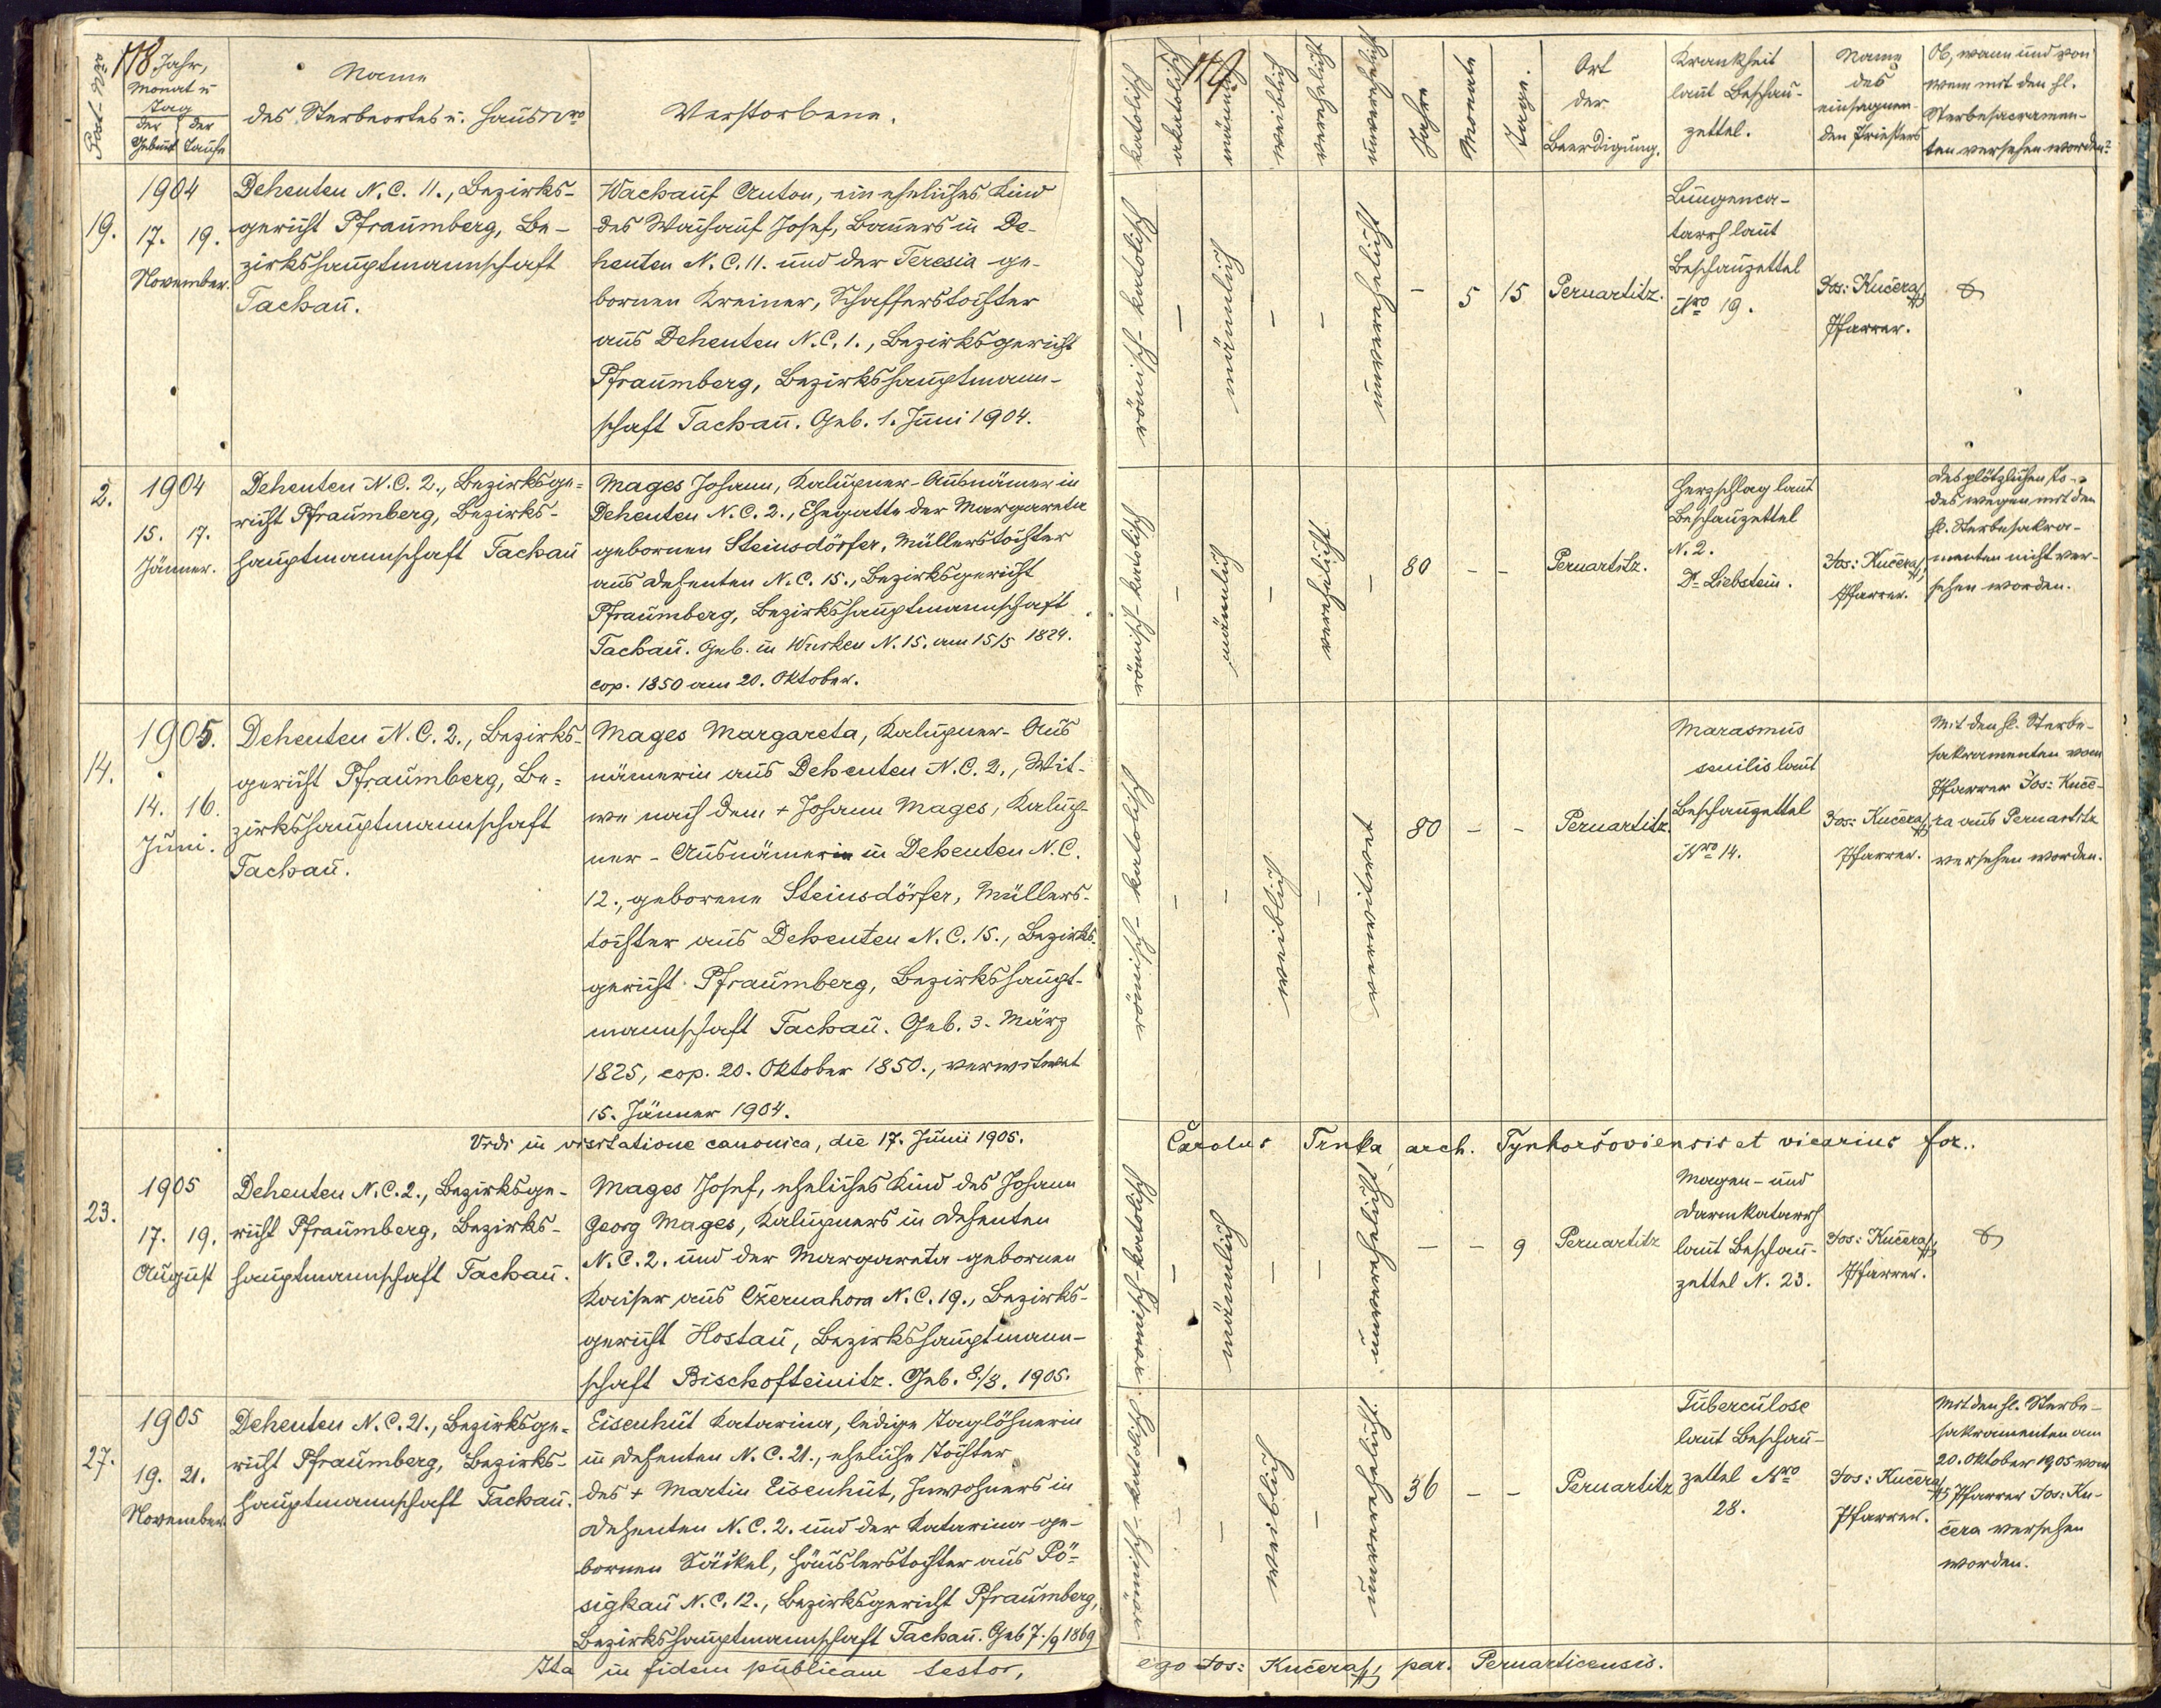 118
Post-Nro
Jahr,
Monat u
Tag
der Geburt
der Taufe
Name
des Sterbeortes u. Haus Nro
Verstorbene.
19.
1904
17. 19.
November.
Dehenten N. C. 11., Bezirks-
gericht Pfraumberg, Be-
zirkshauptmannschaft
Tachau.
Wachauf Anton, ein eheliches Kind
des Wachauf Josef, Bauers in De-
henten N. C. 11. und der Teresia ge-
bornen Kreiner, Schafferstochter
aus Dehenten N. C. 1., Bezirksgericht
Pfraumberg, Bezirkshauptmann-
schaft Tachau. Geb. 1. Juni 1904.
2.
1904
15. 17.
Jänner.
Dehenten N. C. 2., Bezirksge-
richt Pfraumberg, Bezirks-
hauptmannschaft Tachau
Mages Johann, Kalupner-Ausnämer in
Dehenten N. C. 2., Ehegatte der Margareta
gebornen Steinsdörfer, Müllerstochter
aus Dehenten N. C. 15., Bezirksgericht
Pfraumberg, Bezirkshauptmannschaft
Tachau. Geb. in Wurken N. 15. am 15/5 1824.
cop. 1850 am 20. Oktober.
14.
1905.
14. 16.
Juni.
Dehenten N. C. 2., Bezirks-
gericht Pfraumberg, Be-
zirkshauptmannschaft
Tachau.
Mages Margareta, Kalupner-Aus
nämerin aus Dehenten N. C. 2., Wit-
we nach dem + Johann Mages, Kalup-
ner-Ausnämerin in Dehenten N. C.
12., geborene Steinsdörfer, Müllers-
tochter aus Dehenten N. C. 15., Bezirks-
gericht Pfraumberg, Bezirkshaupt-
mannschaft Tachau. Geb. 3. März
1825, cop. 20. Oktober 1850., verwitwet
15. Jänner 1904.
Vidi in visitatione canonica, die 17. Junii 1905.
23.
1905
17. 19.
August
Dehenten N. C. 2., Bezirksge-
richt Pfraumberg, Bezirks-
hauptmannschaft Tachau.
Mages Josef, eheliches Kind des Johann
Georg Mages, Kalupners in Dehenten
N. C. 2. und der Margareta gebornen
Kaiser aus Czernahora N. C. 19., Bezirks-
gericht Hostau, Bezirkshauptmann-
schaft Bischofteinitz. Geb. 8./8. 1905.
27.
1905
19. 21.
November.
Dehenten N. C. 21., Bezirksge-
richt Pfraumberg, Bezirks-
hauptmannschaft Tachau.
Eisenhut Katarina, ledige Taglöhnerin
in Dehenten N. C. 21., eheliche Tochter
des + Martin Eisenhut, Inwohners in
Dehenten N. C. 2. und der Katarina ge-
bornen Säckel, Häuslerstochter aus Pö-
sigkau N. C. 12., Bezirksgericht Pfraumberg,
Bezirkshauptmannschaft Tachau. Geb 7./9 1869
Ita in fidem publicam testor,
119
katolisch
akatolisch
männlich
weiblich
verehelicht
unverehelicht
Jahre
Monate
Tage.
Ort
der
Beerdigung.
Krankheit
laut Beschau-
zettel.
Name
des
einsegnen-
den Priesters
Ob, wann und von
wem mit den hl.
Sterbesacramen-
ten versehen worden?
römisch-katolisch
–
männlich
–
–
unverehelicht
– 5 15
Pernartitz.
Lungenca-
tarrh laut
Beschauzettel
Nro 19.
Jos: Kučera
Pfarrer.
römisch-katolisch
–
männlich
–
verehelicht
–
80 – –
Pernartitz.
Herzschlag laut
Beschauzettel
N. 2.
Dr Liebstein.
Jos: Kučera
Pfarrer.
Des plötzlichen To-
des wegen mit den
hl. Sterbesakra-
menten nicht ver-
sehen worden.
römisch-katolisch
–
–
weiblich
–
verwitwet
80 – –
Pernartitz.
Marasmus
senilis laut
Beschauzettel
Nro 14.
Jos: Kučera
Pfarrer.
Mit den hl. Sterbe-
sakramenten vom
Pfarrer Jos: Kuče-
ra aus Pernartitz
versehen worden.
Carolus Trnka arch. Tynhoršoviensis et vicarius for..
römisch-katolisch
–
männlich
–
–
unverehelicht
– – 9
Pernartitz
Magen- und
Darmkatarrh
laut Beschau-
zettel N. 23.
Jos: Kučera
Pfarrer.
römisch-katolisch
–
–
weiblich
–
unverehelicht
36 – –
Pernartitz
Tuberculose
laut Beschau-
zettel Nro
28.
Jos: Kučera
Pfarrer.
Mit den hl. Sterbe-
sakramenten am
20. Oktober 1905 vom
Pfarrer Jos: Ku-
čera versehen
worden.
ego Jos: Kučera, par. Pernarticensis.